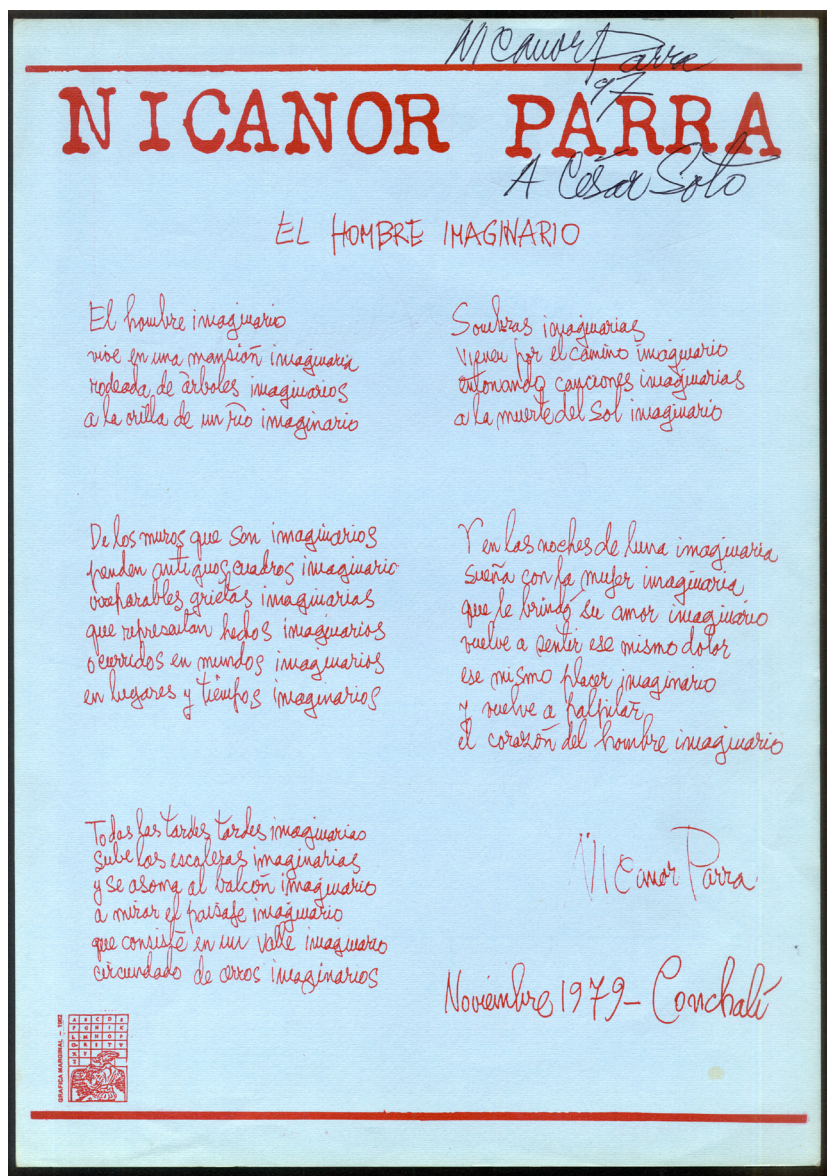 Nicanor Parra
97
NICANOR PARRA
A César Soto
EL HOMBRE IMAGINARIO
El hombre imaginario
vive en una mansión imaginaria
rodeada de árboles imaginarios
a la orilla de un río imaginario
De los muros que son imaginarios
penden antiguos cuadros imaginario
irreparables grietas imaginarias
que representan hechos imaginarios
ocurridos en mundos imaginarios
en lugares y tiempos imaginarios
Todas las tardes tardes imaginarias
sube las escaleras imaginarias
y se asoma al balcón imaginario
a mirar el paisaje imaginario
que consiste en un valle imaginario
circundado de cerros imaginarios
Sombras imaginarias
vienen por el camino imaginario
entonando canciones imaginarias
a la muerte del Sol imaginario
Y en las noches de luna imaginaria
sueña con la mujer imaginaria
que le brindó su amor imaginario
vuelve a sentir ese mismo dolor
ese mismo placer imaginario
y vuelve a palpitar
el corazón del hombre imaginario
Nicanor Parra
Noviembre 1979 - Conchalí
GRAFICA MARGINAL - 1982